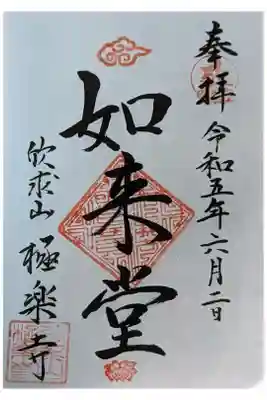 奉拝
令和五年六月二日
如来堂
欣求山
極楽寺